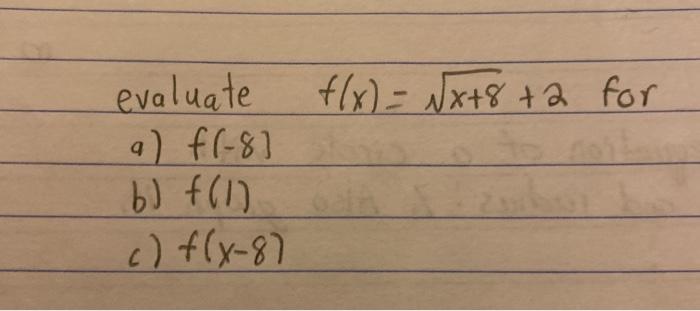 evaluate f(x) = √x+8 + 2 for
a) f(-8)
b) f(1)
c) f(x-8)